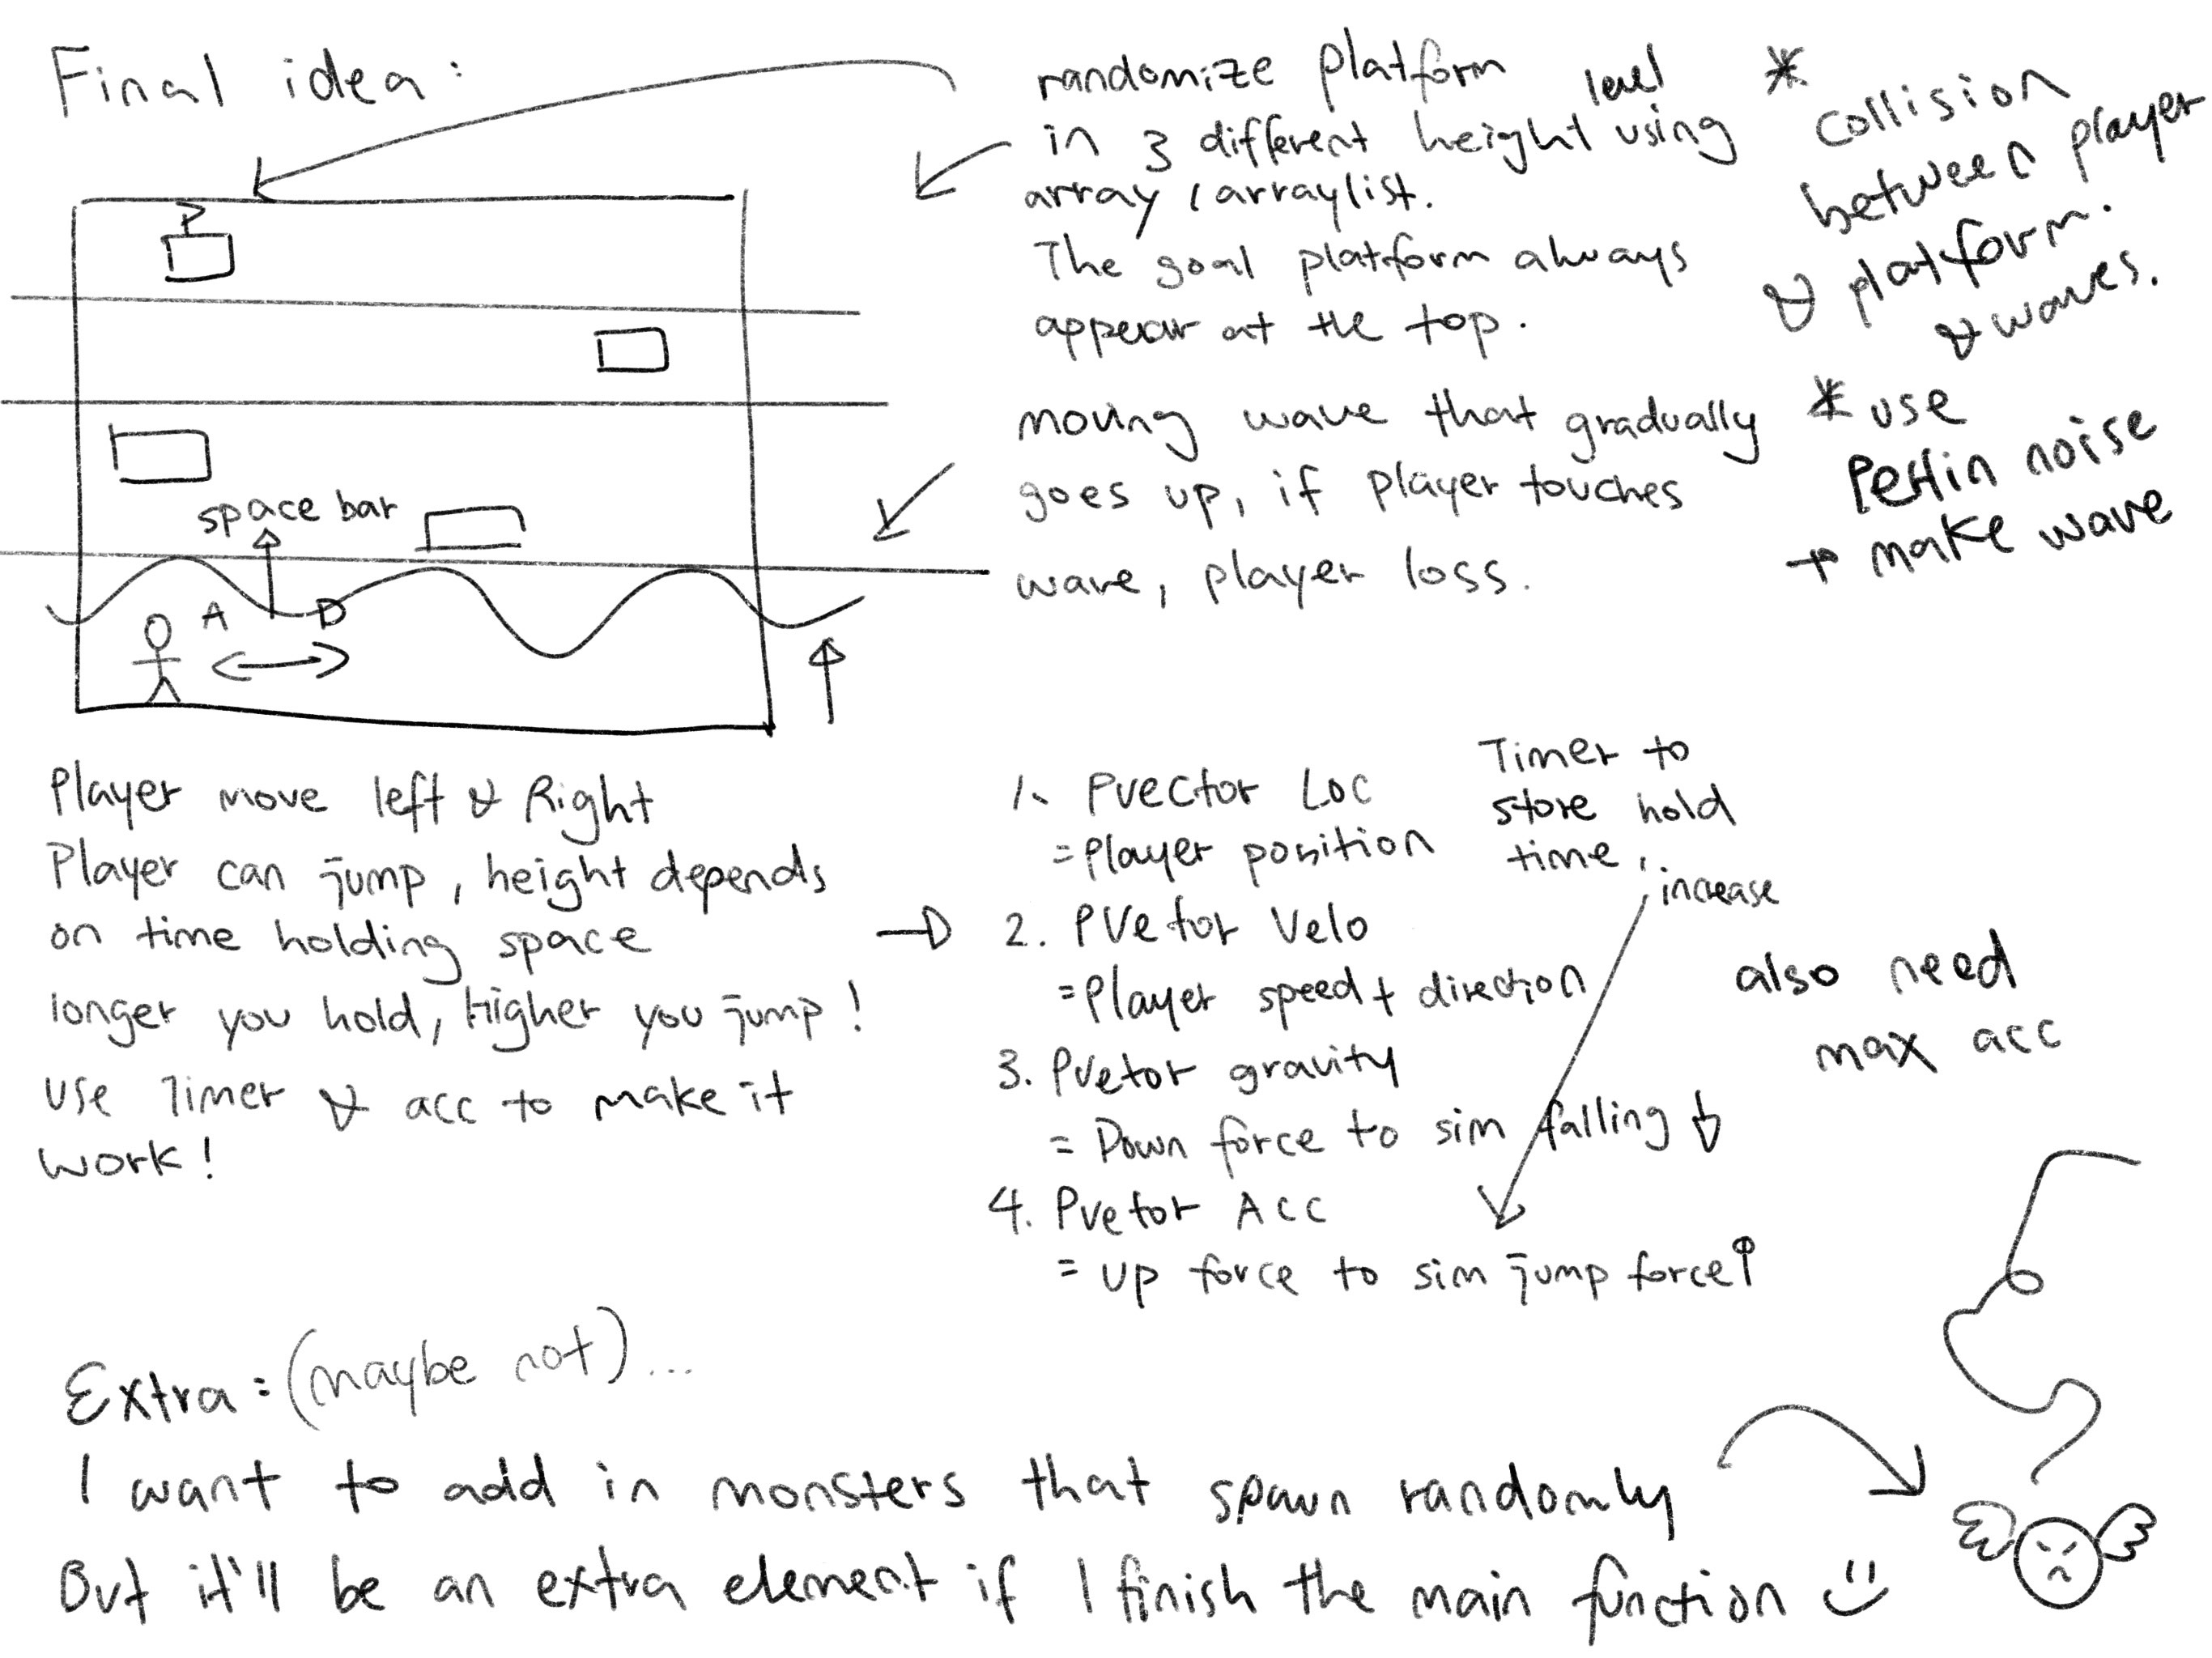 Final idea:
P
space bar
A D
randomize platform
in 3 different height level using
array / arraylist.
The goal platform always
appear at the top.
moving wave that gradually
goes up, if player touches
wave, player loss.
* collision
between player
& platform.
& waves.
* use
Perlin noise
→ make wave
Player move left & Right
Player can jump, height depends
on time holding space
longer you hold, Higher you jump!
use Timer & acc to make it
work!
1. PVector Loc
= Player position
2. PVetor Velo
= Player speed + direction
3. Pvetor gravity
= Down force to sim falling ↓
4. Pvetor Acc
= up force to sim jump force ↑
Timer to
store hold
time,
increase
also need
max acc
Extra = (maybe not)...
I want to add in monsters that spawn randomly
But it'll be an extra element if I finish the main function